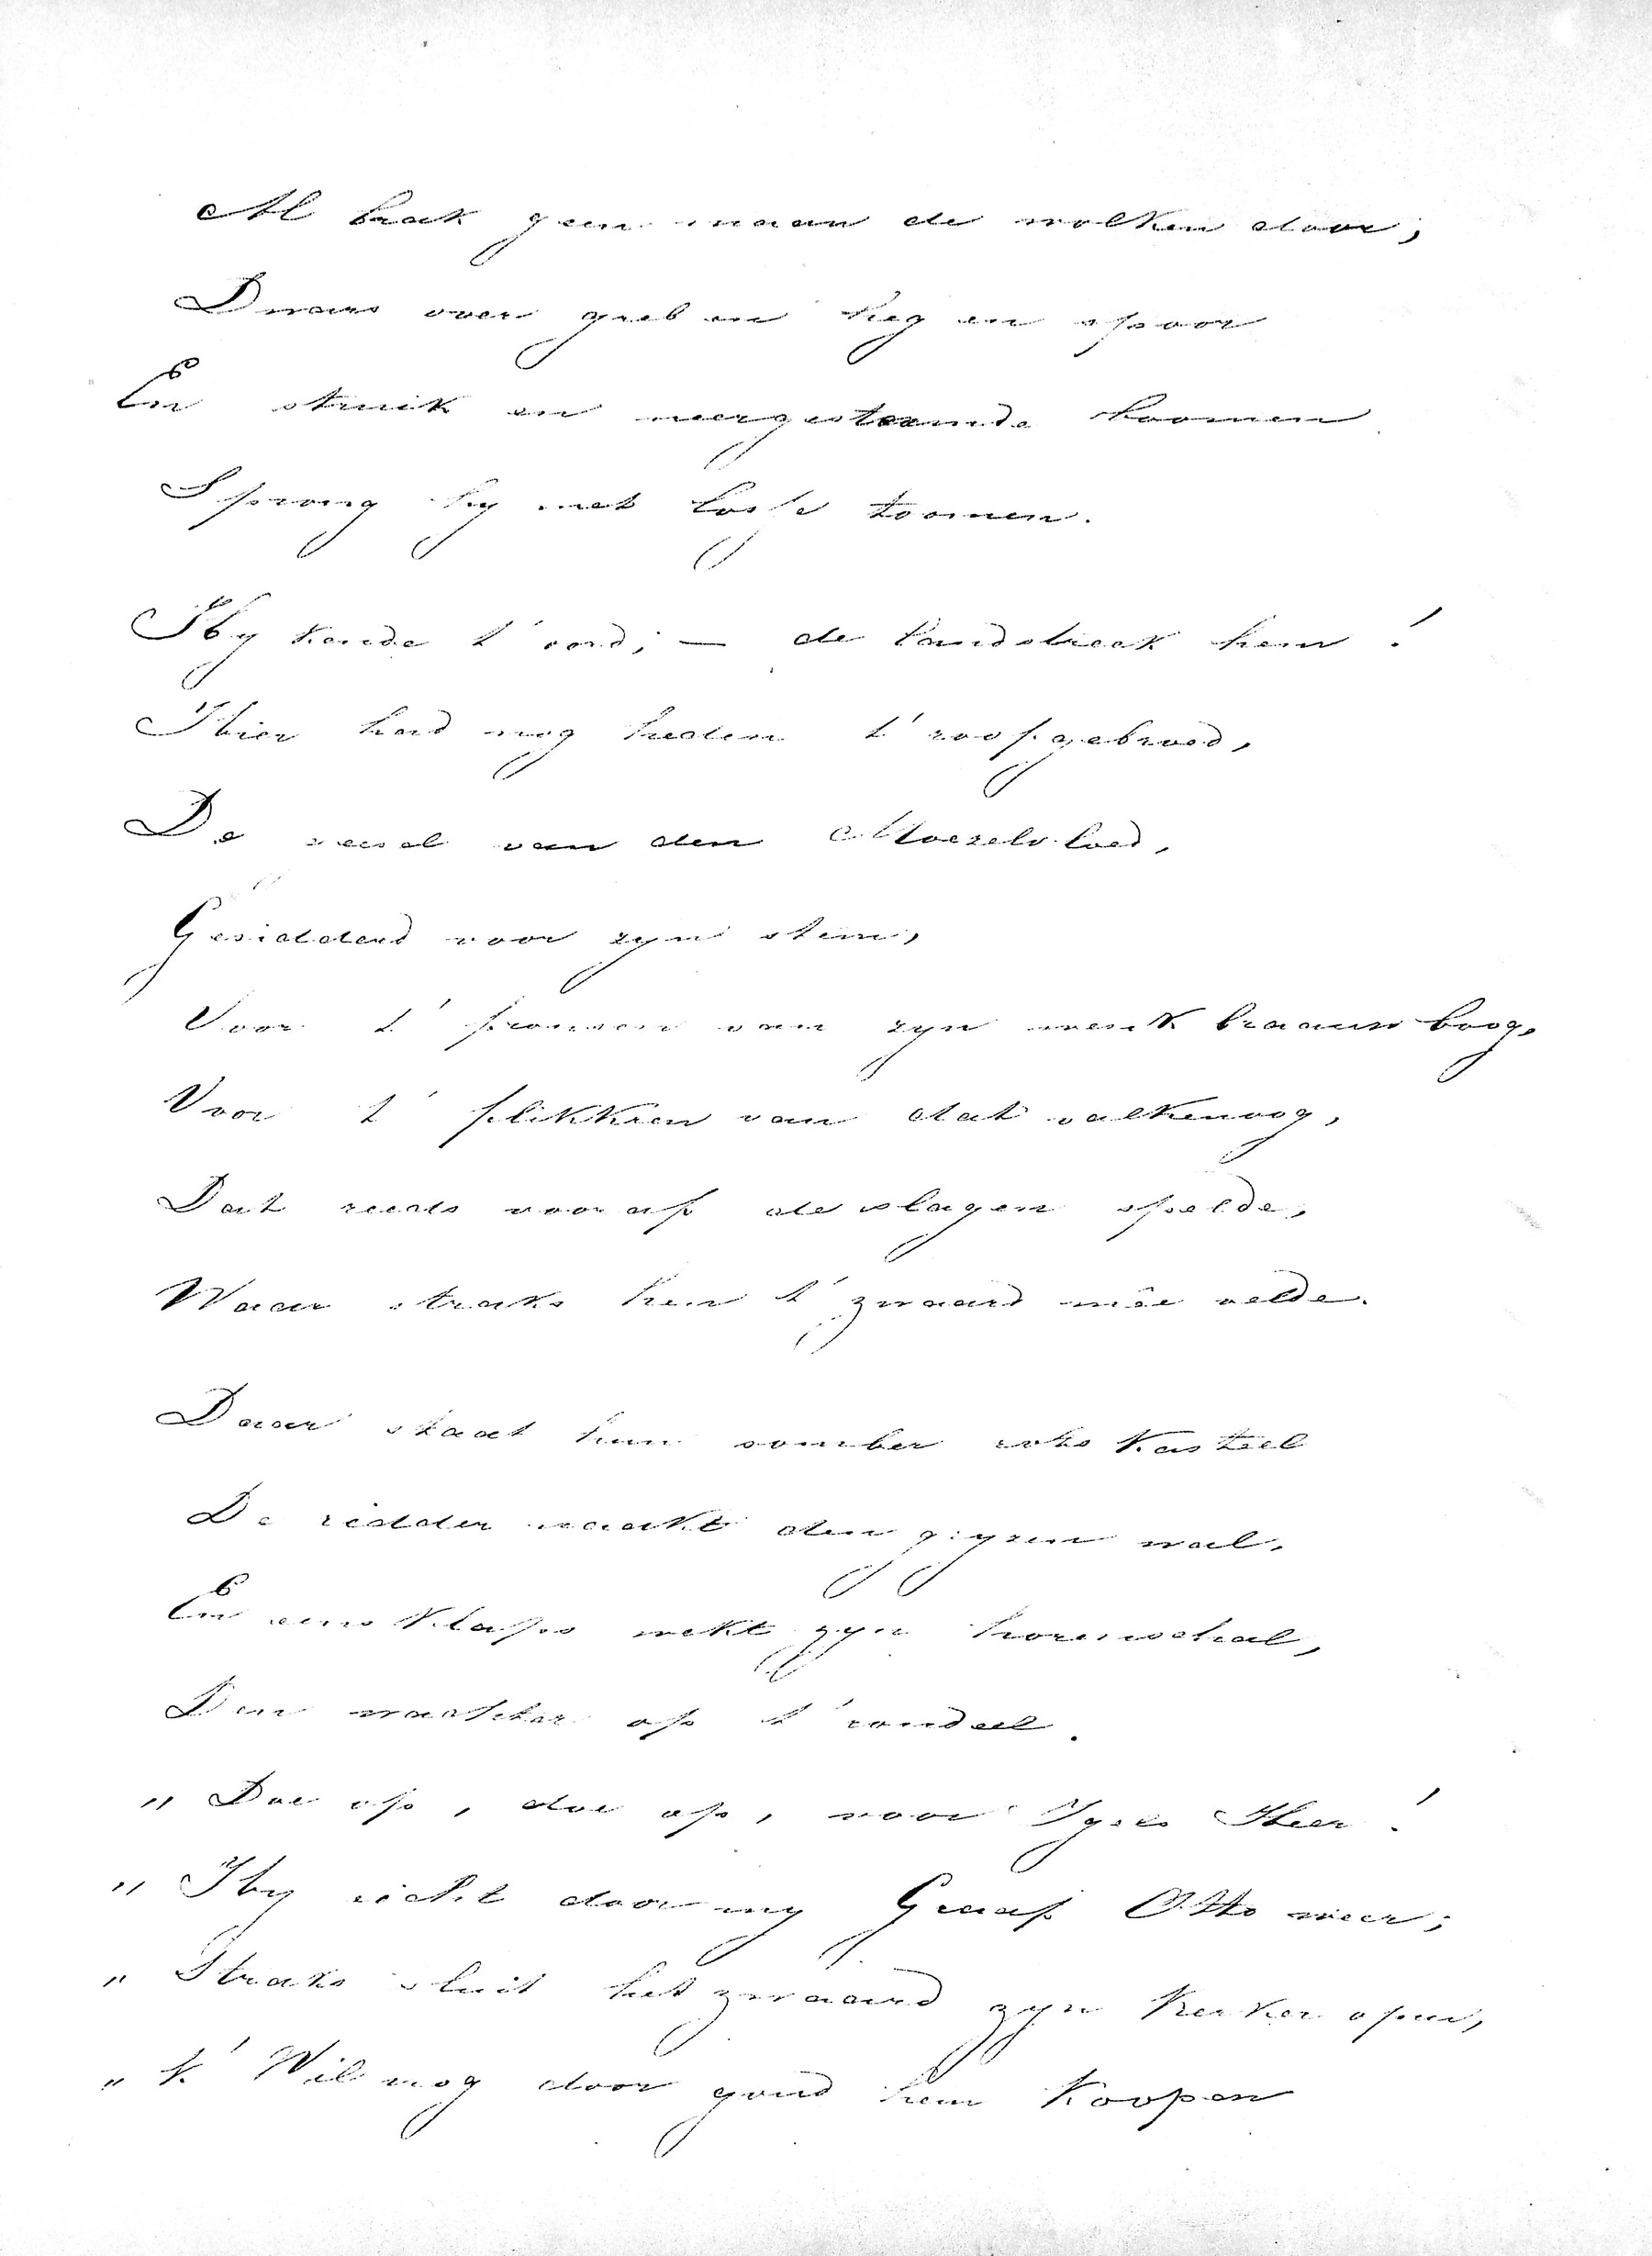 Al brak geen maan de wolken door;
Dwars over greb en heg en spoor
En struik en neergestormde boomen
Sprong hy met losse toomen.
Hy kende t' oord; — de landstreek hem!
Hier had nog heden t' roofgebroed,
De gesel van den Moezelvloed,
Gesidderd voor zyn stem,
Voor t' fronsen van zyn wenkbraauwboog,
Voor t' flikkren van dat valkenoog,
Dat reeds vooraf de slagen spelde,
Waar straks hen t' zwaard mêe velde.
Daar staat hun somber rotskasteel
De ridder naakt den gryzen wal,
En eensklaps wekt zyn horenschal,
Den wachter op t' rondeel.
„ Doe op, doe op, voor Ygers Heer!
„ Hy eicht door my Graaf Otto weer;
„ Straks sluit het zwaard zyn kerker open,
„ k' Wil nog door goud hem koopen